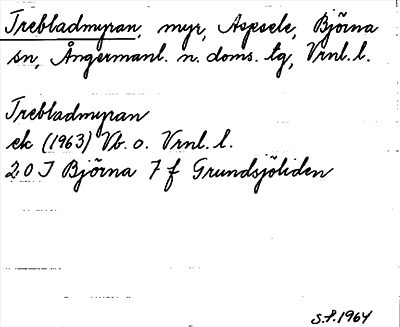 Trebladmyran, myr, Aspsele, Björna
sn, Ångermanl. n. doms. tg, Vrnl. l.
Trebladmyran
ek (1963) Vb. o. Vrnl. l.
20 J Björna 7 f Grundsjöliden
S.f. 1964